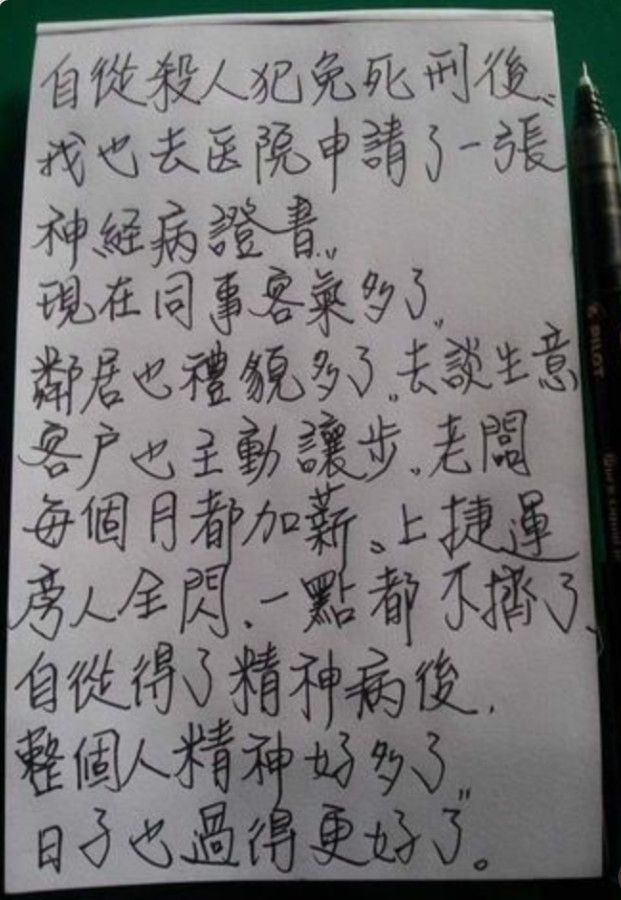 自從殺人犯免死刑後，
我也去医院申請了一張
神経病證書，
現在同事客氣多了，
鄰居也禮貌多了。去談生意
客户也主動讓步。老闆
每個月都加薪。上捷運
旁人全閃、一點都不擠了、
自從得了精神病後，
整個人精神好多了，
日子也過得更好了。
PILOT